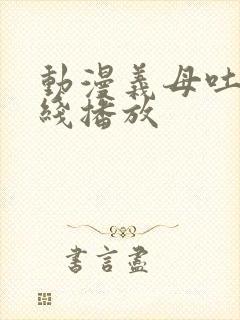 動漫義母吐
綫播放
書言盡